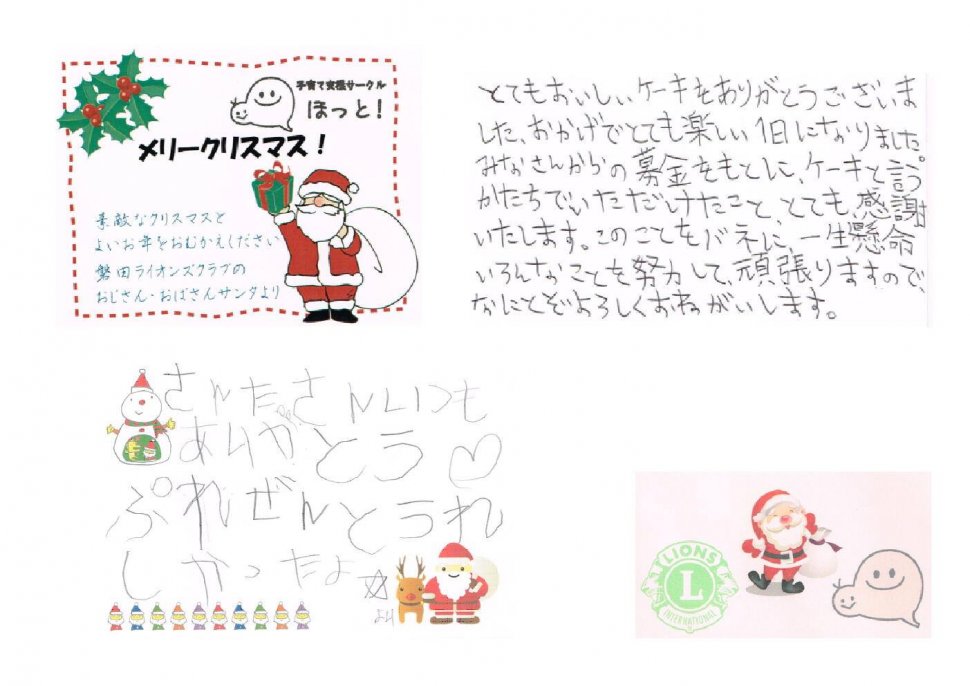 子育て支援サークル
ほっと！
メリークリスマス！
素敵なクリスマスと
よいお年をおむかえください
磐田ライオンズクラブの
おじさん・おばさんサンタより
とてもおいしいケーキをありがとうございま
した、おかげでとても楽しい1日になりました。
みなさんからの募金をもとに、ケーキと言う
かたちでいただけたこと、とても、感謝
いたします。このことをバネに、一生懸命
いろんなことを努力して、頑張りますので、
なにとぞよろしくおねがいします。
さんたさんいつも
ありがとう♡
ぷれぜんとうれ
しかったよ
より
LIONS
L
INTERNATIONAL